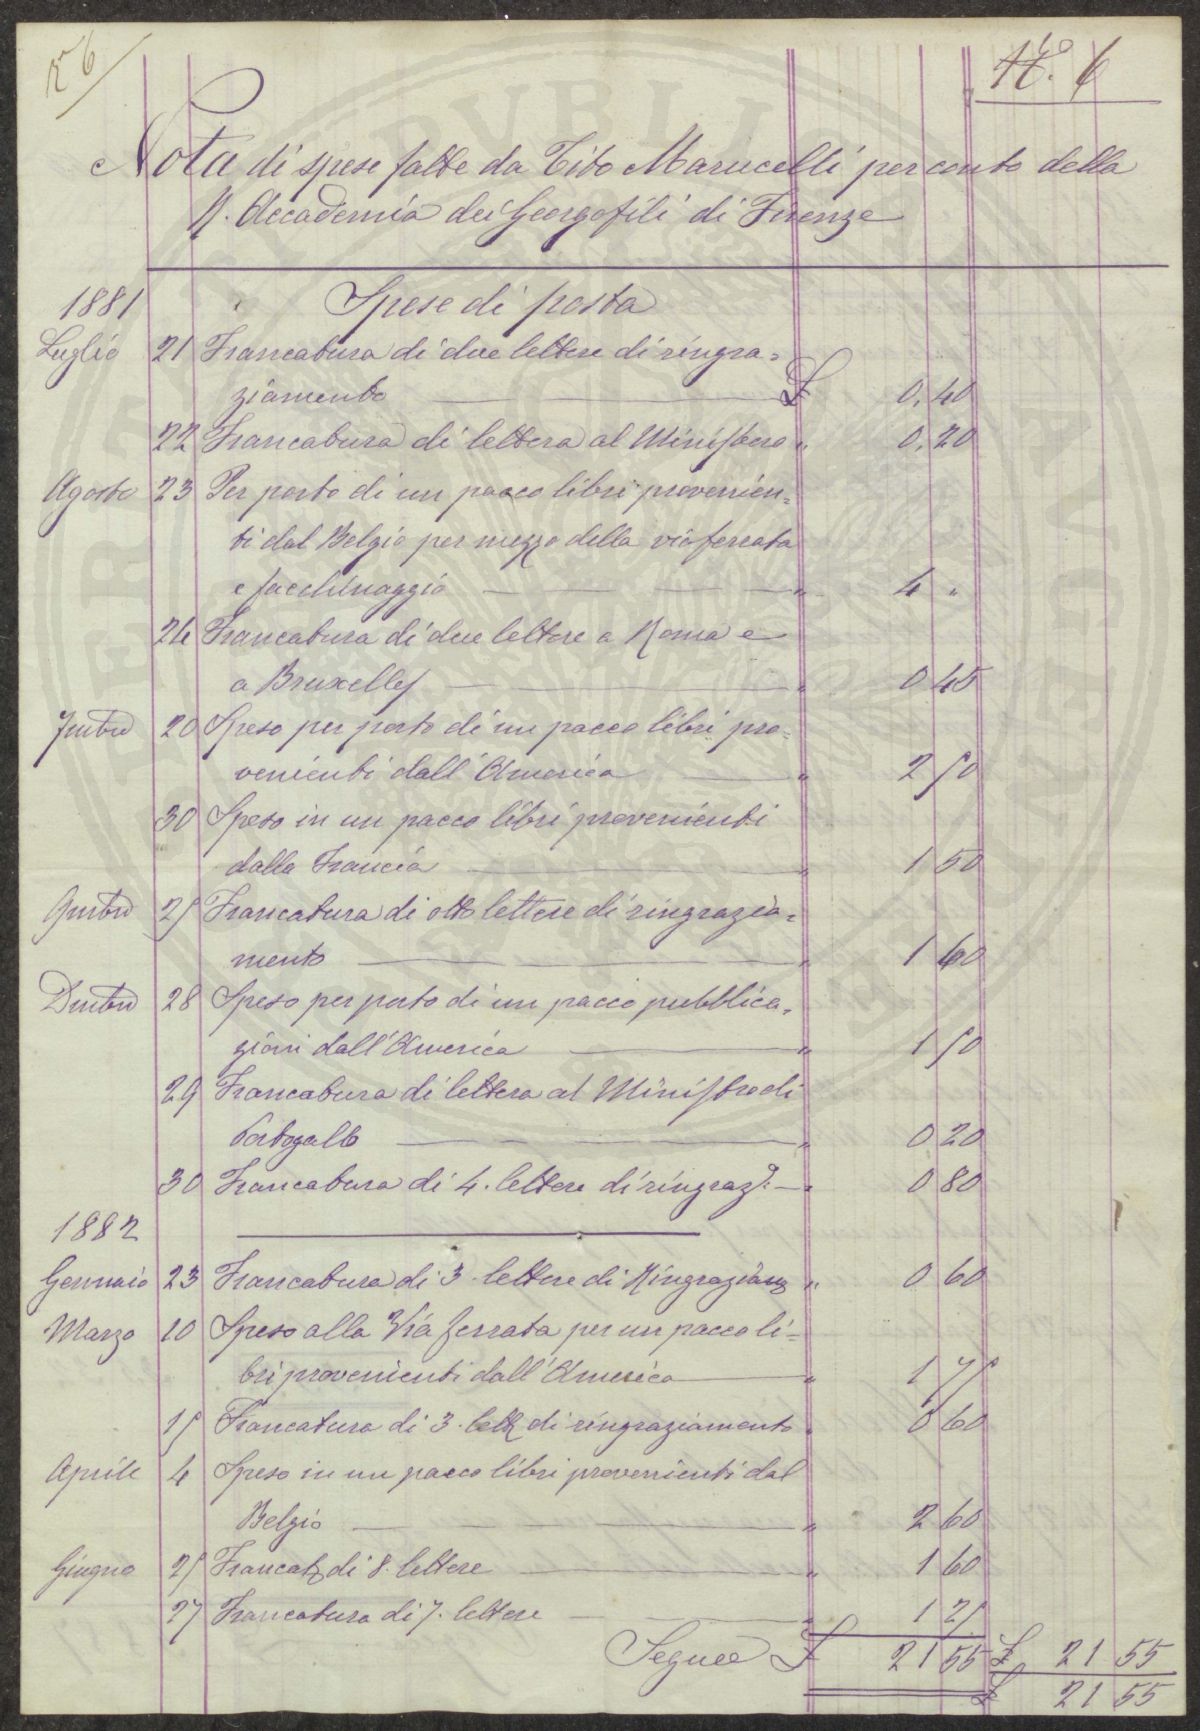 N.° 6
Nota di spese fatte da Tito Marucelli per conto della
R. Accademia dei Georgofili di Firenze
1881 Spese di posta
Luglio 21 Francatura di due lettere di ringra=
ziamento £ 0,40
22 Francatura di lettera al Ministero " 0,20
Agosto 23 Per porto di un pacco libri provenien=
ti dal Belgio per mezzo della via ferrata
e facchinaggio " 4 "
24 Francatura di due lettere a Roma e
a Bruxelles " 0 45
7mbre 20 Speso per porto di un pacco libri pro=
venienti dall'America " 2 50
30 Speso in un pacco libri provenienti
dalla Francia " 1 50
9mbre 25 Francatura di otto lettere di ringrazia=
mento " 1 60
Dmbre 28 Speso per porto di un pacco pubblica=
zioni dall'America " 1 50
29 Francatura di lettera al Ministro di
Portogallo " 0 20
30 Francatura di 4. lettere di ringraz. " 0 80
1882
Gennaio 23 Francatura di 3 lettere di Ringraziam " 0 60
Marzo 10 Speso alla Via ferrata per un pacco li=
bri provenienti dall'America " 1 75
15 Francatura di 3. lett. di ringraziamento " 0 60
Aprile 4 Speso in un pacco libri provenienti dal
Belgio " 2 60
Giugno 25 Francat. di 8. lettere " 1 60
27 Francatura di 7. lettere " 1 25
Segue £ 21 55 £ 21 55
£ 21 55